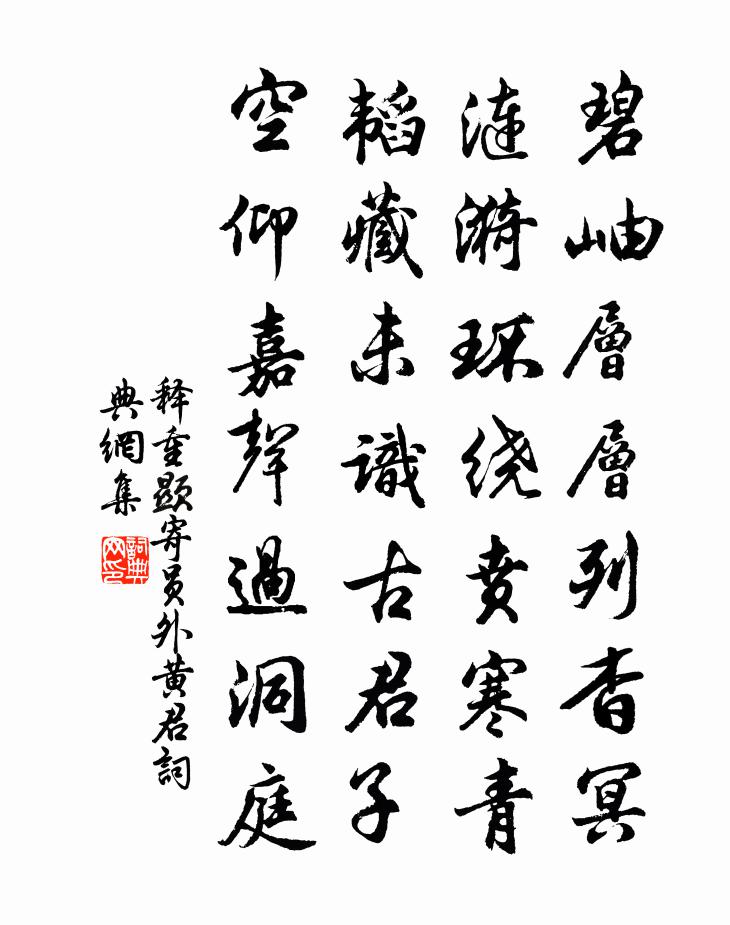 碧岫層層列杳冥
漣漪环绕賁寒青
韜藏未識古君子
空仰嘉聲過洞庭
释重顯寄员外黄君詞
典網集
詞典
网印